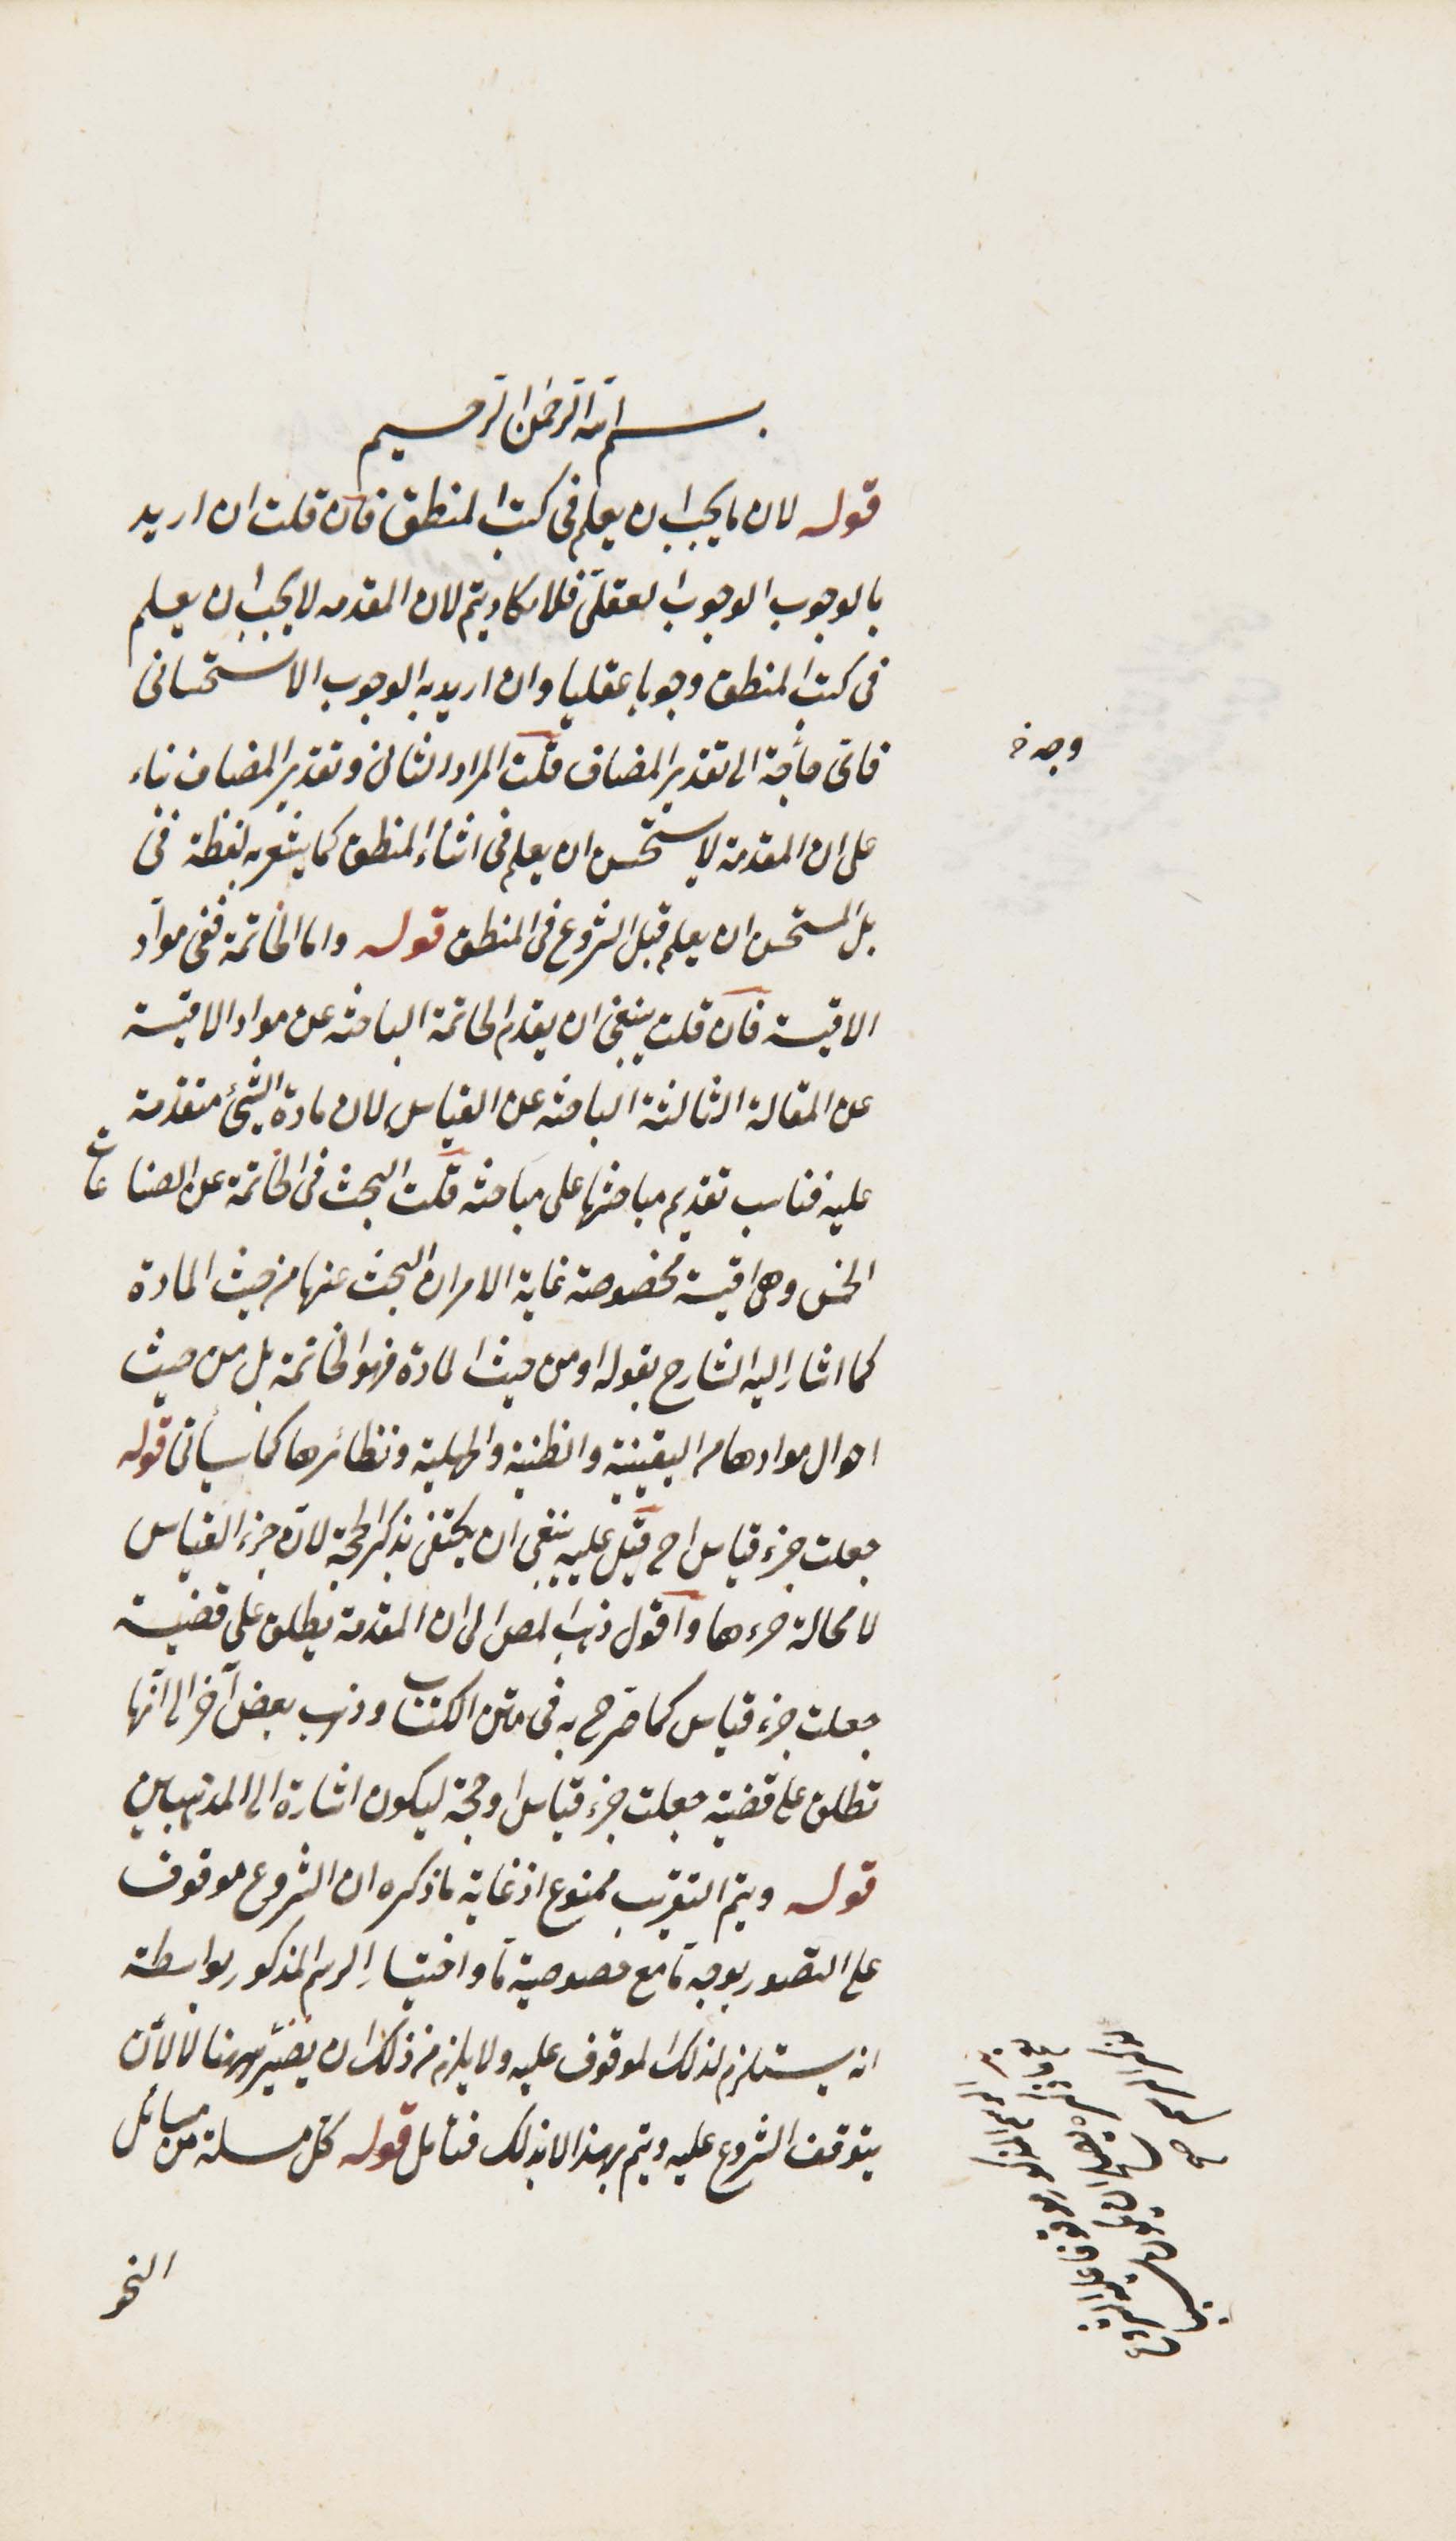 بسم الله الرحمن الرحيم
قوله لان ما يجب ان يعلم فى كتب المنطق فان قلت ان اريد
بالوجوب الوجوب العقلى فلا يكاد يتم لان المقدمه لا يجب ان يعلم
فى كتب المنطق وجوبا عقليا وان اريد به الوجوب الاستحسانى
فاى حاجة الى تقدير المضاف قلت المراد الثانى وتقدير المضاف بناء
على ان المقدمة لا يستحسن ان يعلم فى اثناء المنطق كما يشعر به لفظة فى
بل المستحسن ان يعلم قبل الشروع فى المنطق قوله واما الخاتمة ففى مواد
الاقيسة فان قلت ينبغى ان يقدم الخاتمة الباحثه عن مواد الاقيسة
عن المقالة الثالثة الباحثه عن القياس لان مادة الشئ متقدمة
عليه فناسب تقديم مباحثها على مباحثه قلت البحث فى الخاتمة عن الصناعات
الخمس وهى اقيسة مخصوصة غاية الامر ان البحث عنها من حيث المادة
كما اشار اليه الشارح بقوله او من حيث المادة فهو الخاتمة بل من حيث
احوال موادها من اليقينية والظنية والجهلية ونظائرها كما سيأتى قوله
جعلت جزء قياس اح قيل عليه ينبغى ان يكتفى بذكر الحجة لان جزء القياس
لا محالة جزءها واقول ذهب المص الى ان المقدمة يطلق على قضية
جعلت جزء قياس كما صرح به فى متن الكتاب وذهب بعض آخر الى انها
تطلق على قضية جعلت جزء قياس او حجة ليكون اشارة الى المذهبين
قوله ويتم التقريب ممنوع اذ غاية ما ذكره ان الشروع موقوف
على التصور بوجه ما مع خصوصية ما واختيار الرسم المذكور بواسطة
انه يستلزم لذلك الموقوف عليه ولا يلزم من ذلك ان يصير رسمنا لا لان
يتوقف الشروع عليه ويتم بهذا لا بذلك فتأمل قوله كل مسئلة من مسائل
النحو
وجه خ